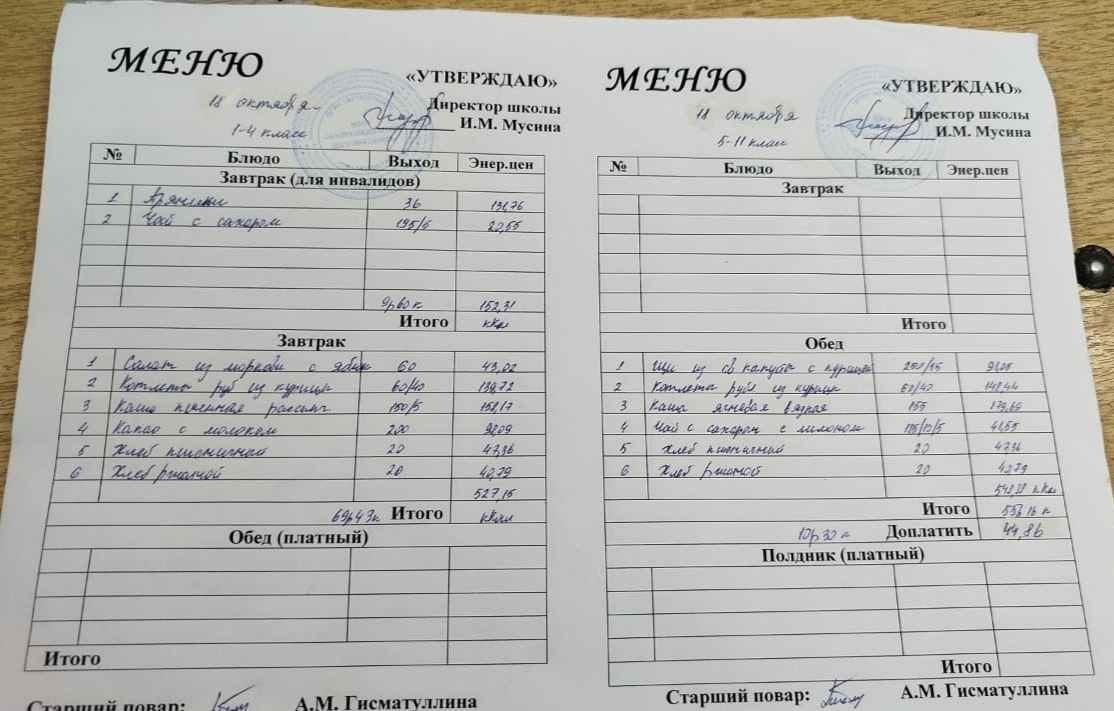 МЕНЮ
«УТВЕРЖДАЮ»
18 октября
Директор школы
1-4 класс
И.М. Мусина
№ Блюдо Выход Энер.цен
Завтрак (для инвалидов)
1 Пряники 36 131,76
2 Чай с сахаром 195/5 20,55
9р60к 152,31
Итого ккал
Завтрак
1 Салат из моркови с яблок 60 43,02
2 Котлеты руб из курицы 60/40 139,72
3 Каша пшенная рассып 150/5 158,17
4 Какао с молоком 200
5 Хлеб пшеничный 20 47,36
6 Хлеб ржаной 20 40,79
527,15
69р43к Итого ккал
Обед (платный)
Итого
Старший повар: А.М. Гисматуллина
МЕНЮ
«УТВЕРЖДАЮ»
18 октября
Директор школы
И.М. Мусина
5-11 класс
№ Блюдо Выход Энер.цен
Завтрак
Итого
Обед
1 Щи из св капусты с курицей
2 Котлеты руб из курицы 60/40 148,44
3 Каша ячневая вязкая 155 179,69
4 Чай с сахаром с лимоном 41,55
5 Хлеб пшеничный 20 47,36
6 Хлеб ржаной 20 40,79
ккал
Итого
10р30к Доплатить 44,86
Полдник (платный)
Итого
Старший повар: А.М. Гисматуллина